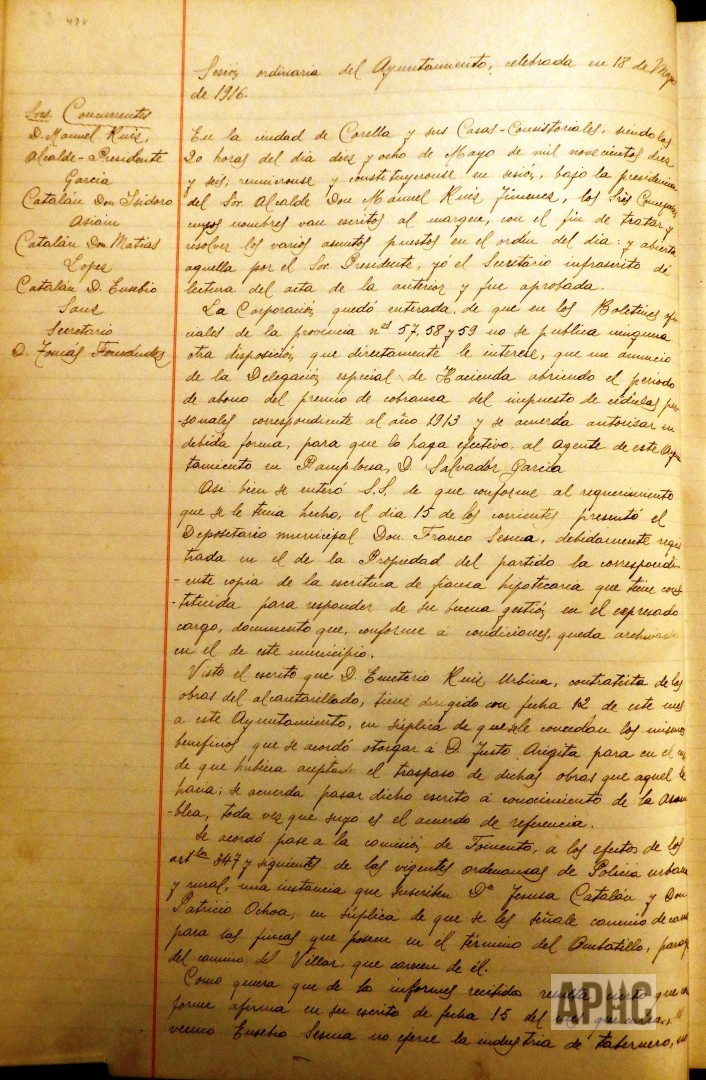 Sesión ordinaria del Ayuntamiento, celebrada en 18 de Mayo
de 1916.
Sres. Concurrentes
D. Manuel Ruiz,
Alcalde-a Presidente
Garcia
Catalán Don Isidoro
Asiain
Catalán Don Matias
Lopez
Catalán D. Eusebio
Sanz
Secretario
D. Tomás Fernández
En la ciudad de Corella y sus Casas-Consistoriales, siendo las
20 horas del dia diez y ocho de Mayo de mil novecientos diez
y seis, reunieronse y constituyeronse en sesión, bajo la presidencia
del Sor. Alcalde Don Manuel Ruiz Jimenez, los Sres Concejales
cuyos nombres van escritos al margen, con el fin de tratar y
resolver los varios asuntos puestos en el orden del dia: y abierta
aquella por el Sor. Presidente, yó el Secretario infrascrito dí
lectura del acta de la anterior y fue aprobada.
La Corporación quedó enterada, de que en los Boletines ofi
ciales de la provincia nos 57, 58 y 59 no se publica ninguna
otra disposición que directamente le interese, que un anuncio
de la Delegación especial de Hacienda abriendo el periodo
de abono del premio de cobranza del impuesto de cédulas per
-sonales correspondiente al año 1913 y se acuerda autorizar en
debida forma, para que lo haga efectivo, al Agente de este Ayun
tamiento en Pamplona, D. Salvador Garcia
Asi bien se enteró S.S. de que conforme al requerimiento
que se le tenia hecho, el dia 15 de los corrientes presentó el
Depositario municipal Don Franco Sesma, debidamente regis
trada en el de la Propiedad del partido la correspondi-
-ente copia de la escritura de fianza hipotecaria que tiene cons
-tituida para responder de su buena gestión en el expresado
cargo, documento que, conforme á condiciones, queda archivado
en el de este municipio.
Visto el escrito que D. Emeterio Ruiz Urbina, contratista de las
obras del alcantarillado, tiene dirigido con fecha 12 de este mes
a este Ayuntamiento, en súplica de que se le concedan los mismos
beneficios que se acordó otorgar á D. Justo Arigita para en el
de que hubiera aceptado el traspaso de dichas obras que aquel le
hacia; se acuerda pasar dicho escrito á conocimiento de la Asam
-blea, toda vez que suyo es el acuerdo de referencia.
Se acordó pase a la comisión de Fomento, a los efectos de los
artlos 347 y siguientes de las vigentes ordenanzas de Policia urbana
y rural, una instancia que suscriben Da Jesusa Catalán y Don
Patricio Ochoa, en súplica de que se les señale camino de
para las fincas que poseen en el término del Ombatillo,
del camino del Villar, que carecen de él.
Como quiera que de lo informes recibido resulta cierto que
forme afirma en su escrito de fecha 15 del
vecino Eusebio Sesma no ejerce la industria de tabernero,
APHC